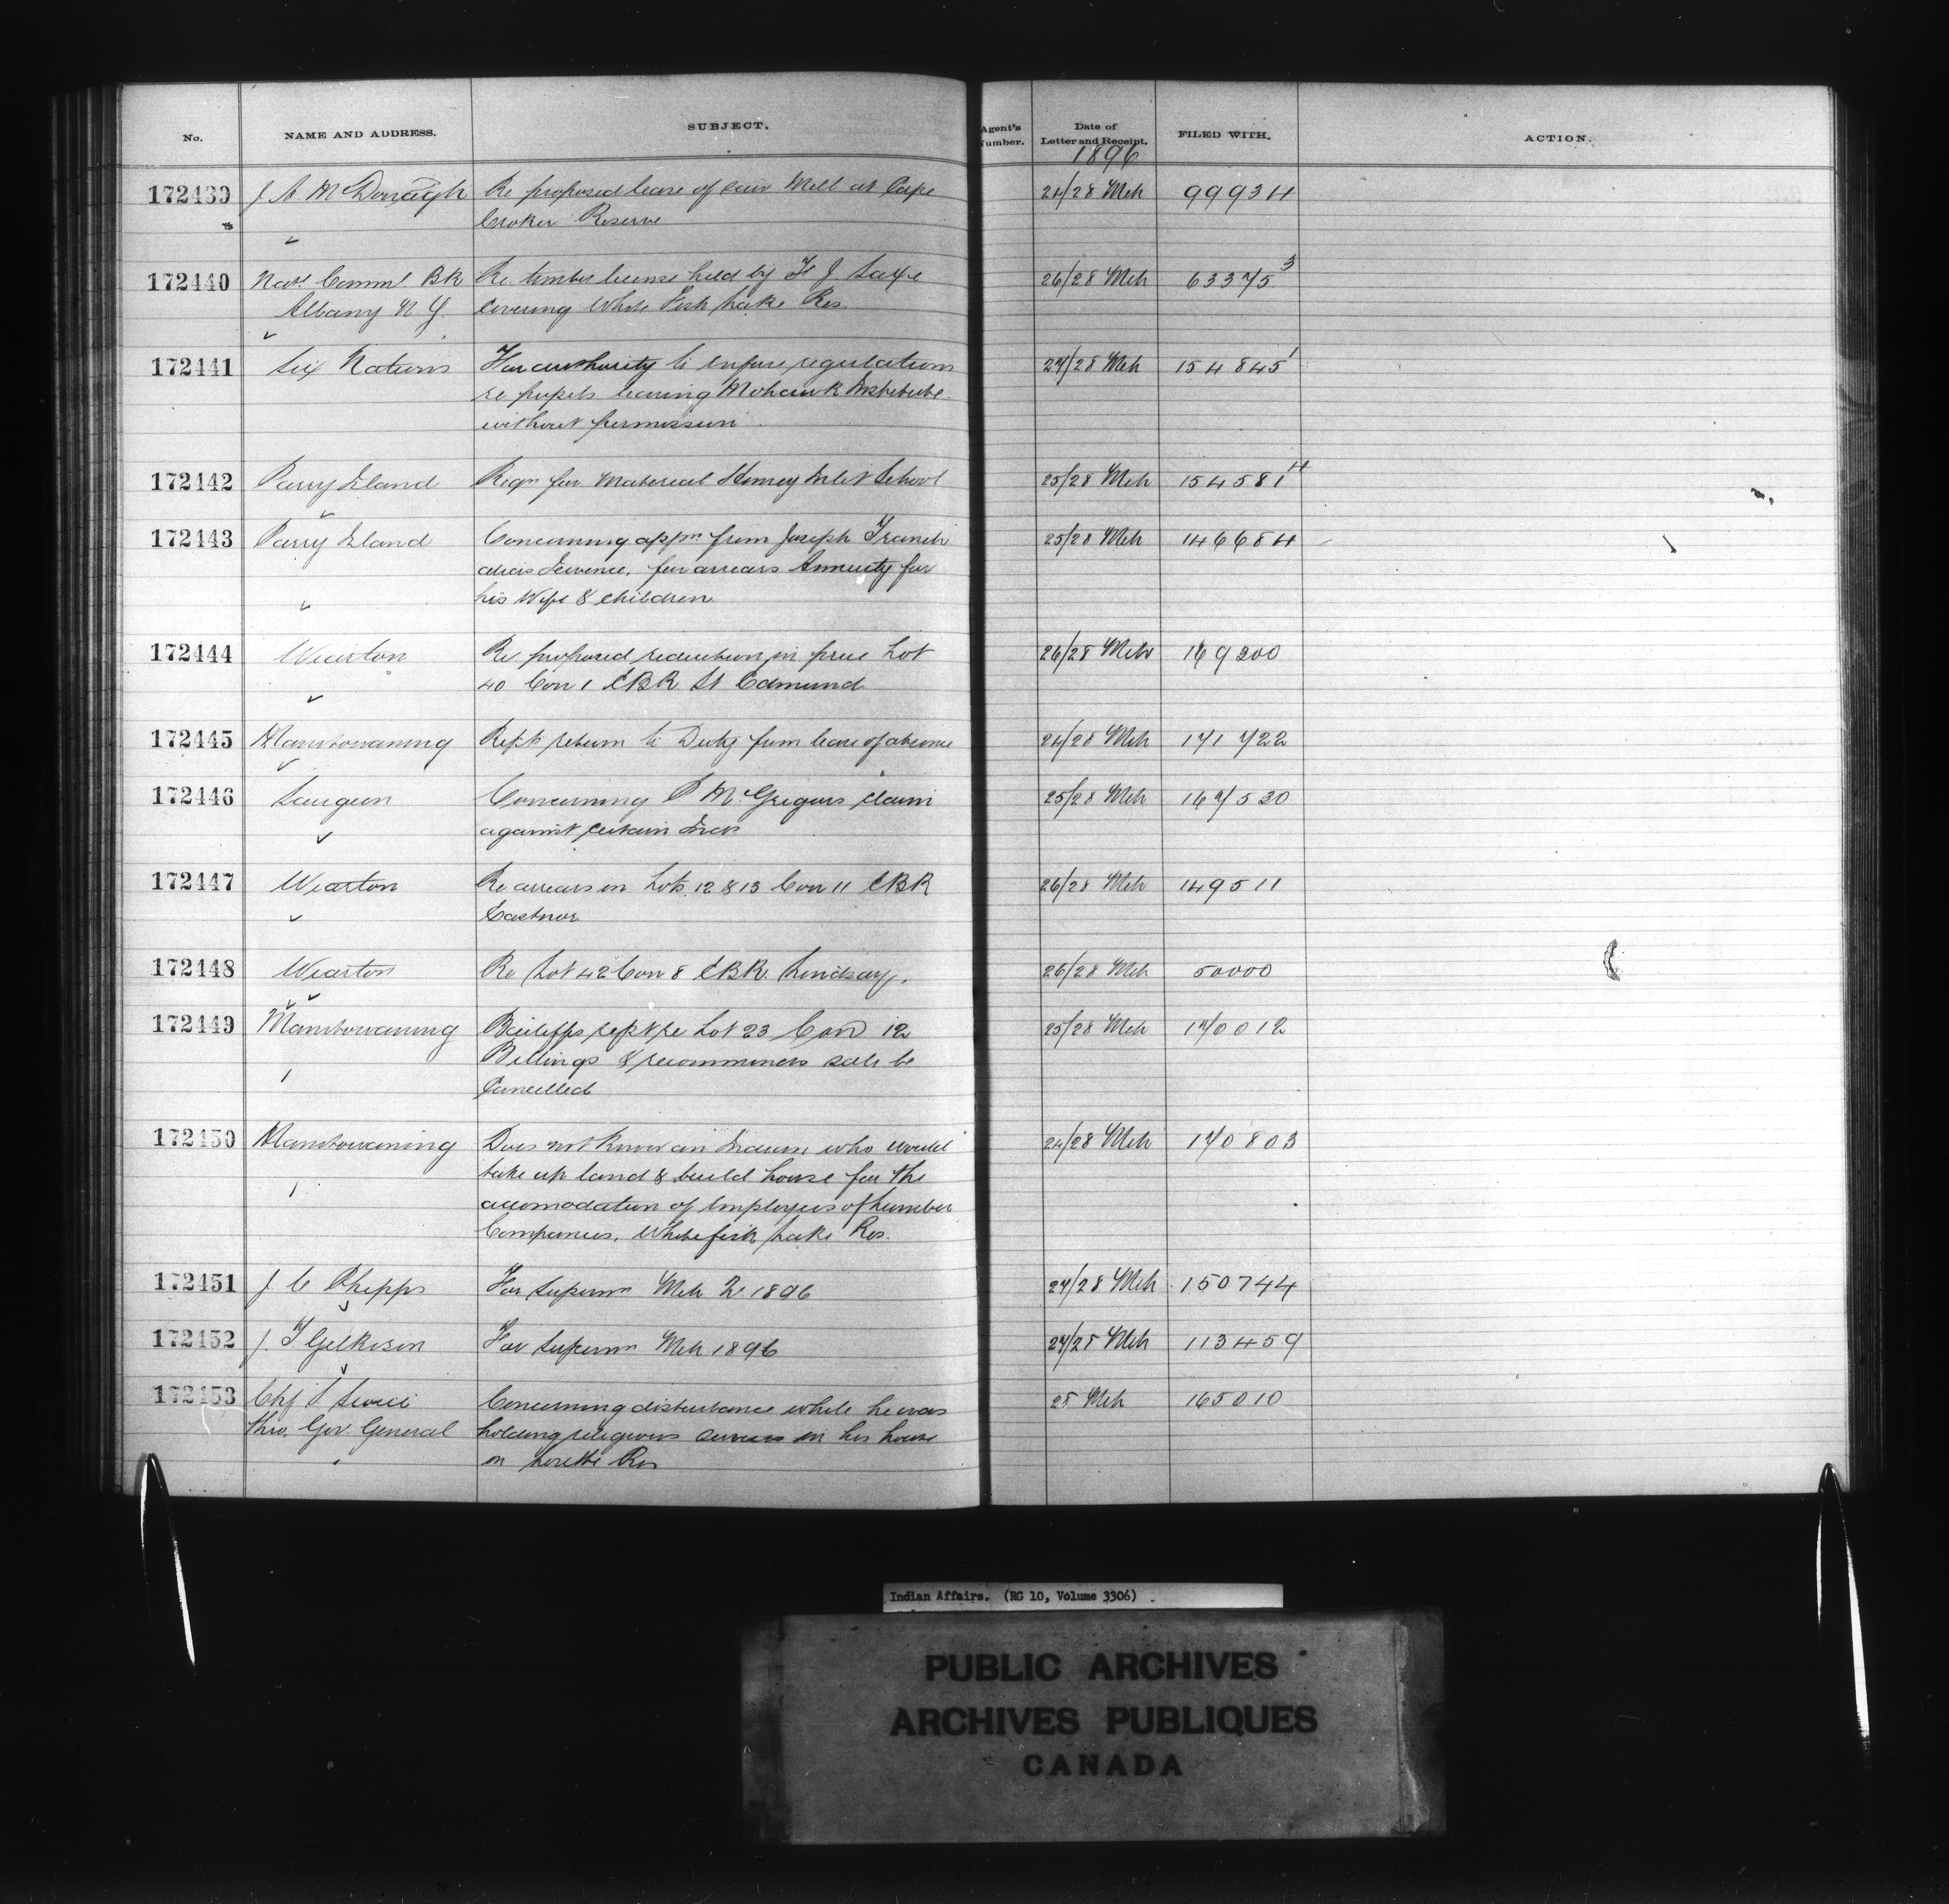 No. NAME AND ADDRESS. SUBJECT. Agent's Number. Date of Letter and Receipt. FILED WITH. ACTION.
1896
172439 J A McDonagh Re proposed lease of saw Mill at Cape 24/28 Mch 99934
Croker Reserve
172440 Natl Comml BK Re timber license held by H J Saxe 26/28 Mch 63375 3
Albany N Y. covering White Fish Lake Res
172441 Six Nations For authority to enforce regulations 27/28 Mch 154845 1
re pupils leaving Mohawk Institute
without permission
172442 Parry Island Reqn for Material Henvey Inlet School 25/28 Mch 154581 4
172443 Parry Island Concerning appn from Joseph 25/28 Mch 146684
alias for arrears Annuity for
his Wife & children
172444 Wiarton Re proposed reduction in price Lot 26/28 Mch 169200
40 Con 1 EBR St Edmund
172445 Manitowaning Rept return to Duty from leave of absence 24/28 Mch 171722
172446 Saugeen Concerning P McGregors claim 25/28 Mch 167530
against certain Inds
172447 Wiarton Re arrears on Lots 12 & 13 Con 11 EBR 26/28 Mch 149511
Eastnor
172448 Wiarton Re Lot 42 Con 8 EBR Lindsay. 26/28 Mch 50000
172449 Manitowaning Bailiffs rept re Lot 23 Con 12 25/28 Mch 170012
Billings & recommends sale be
Cancelled
172450 Manitowaning Does not know an Indian who would 24/28 Mch 170803
take up land & build house for the
accomodation of Employees of Lumber
Companies, Whitefish Lake Res.
172451 J C Phipps For Superann Mch 1896 27/28 Mch 150744
172452 J. T Gilkison For Superann Mch 1896 27/28 Mch 113459
172453 Chf Concerning disturbance while he was 28 Mch 165010
thro. Gov. General holding religious services in his house
on Lorette Res
Indian Affairs. (RG 10, Volume 3306)
PUBLIC ARCHIVES
ARCHIVES PUBLIQUES
CANADA